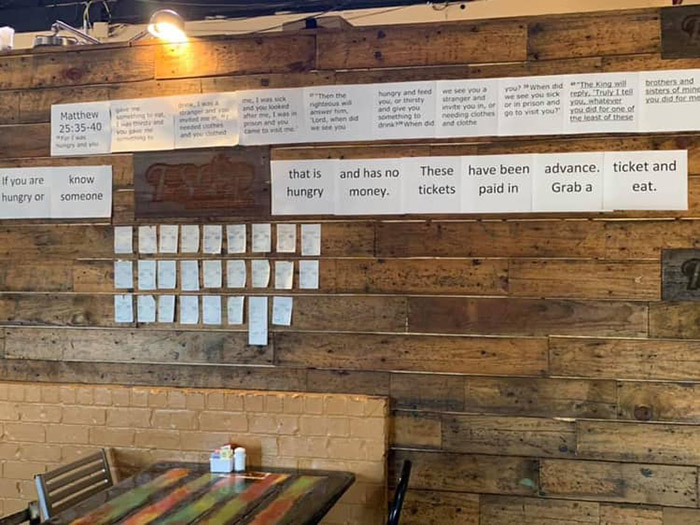 Matthew
25:35-40
³⁵For I was
hungry and you
gave me
something to eat,
I was thirsty and
you gave me
something to
drink, I was a
stranger and you
invited me in, ³⁶I
needed clothes
and you clothed
me, I was sick
and you looked
after me, I was in
prison and you
came to visit me.'
³⁷"Then the
righteous will
answer him,
'Lord, when did
we see you
hungry and feed
you, or thirsty
and give you
something to
drink? ³⁸When did
we see you a
stranger and
invite you in, or
needing clothes
and clothe
you? ³⁹When did
we see you sick
or in prison and
go to visit you?'
⁴⁰"The King will
reply, 'Truly I tell
you, whatever
you did for one of
the least of these
brothers and
sisters of mine
you did for me
If you are know that is and has no These have been advance. ticket and
hungry or someone hungry money. tickets paid in Grab a eat.